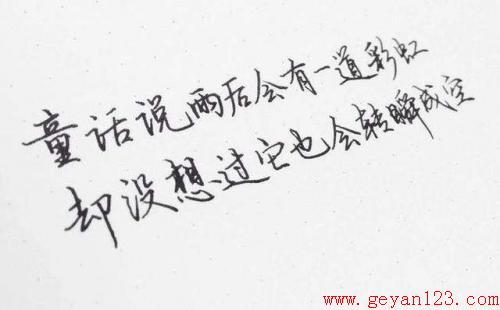 童话说雨后会有一道彩虹
却没想过它也会转瞬成空
www.geyan123.com